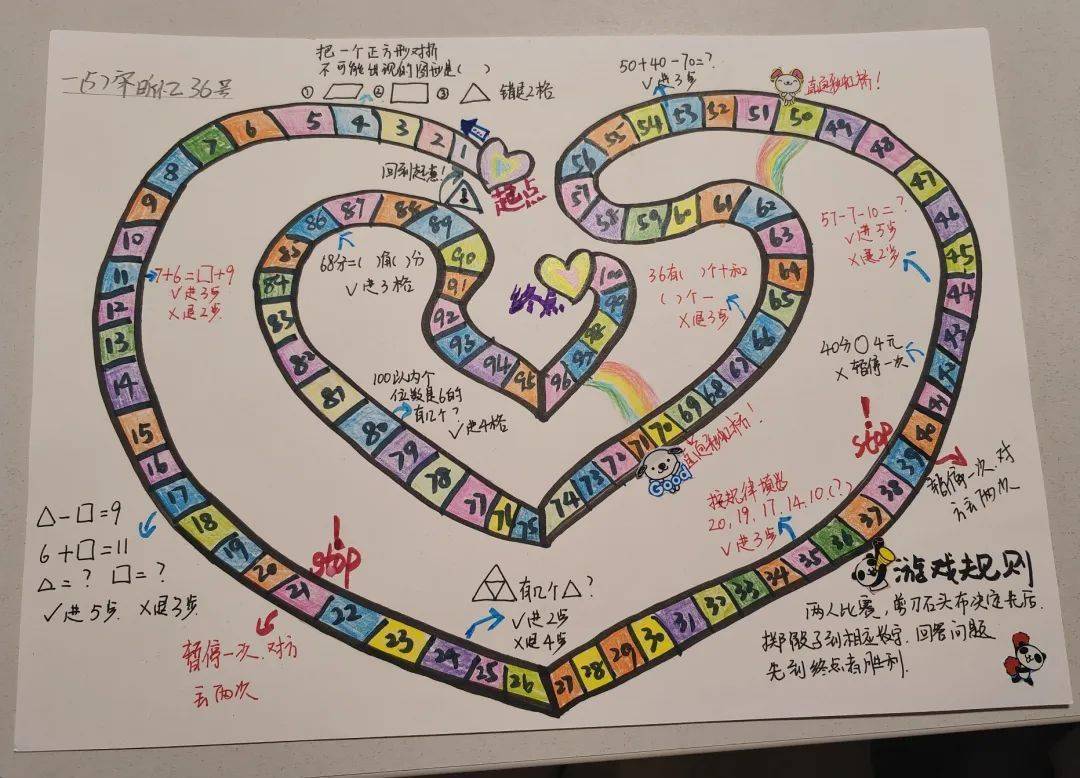 把一个正方形对折
不可能出现的图形是( )
① ② ③ 错退2格
50+40-70=?
✓进3步
直通彩虹桥!
回到起点!
起点
1 2 3 4 5 6 7 8 9 10 11 12 13 14 15 16 17 18 19 20 21 22 23 24 25 26 27 28 29 30 31 32 33 34 35 36 37 38 39 40 41 42 43 44 45 46 47 48 49 50 51 52 53 54 55 56 57 58 59 60 61 62 63 64 65 66 67 68 69 70 71 72 73 74 75 76 77 78 79 80 81 82 83 84 85 86 87 88 89 90 91 92 93 94 95 96 97 98 99 100
终点
7+6=□+9
✓进3步
×退2步
68分=( )角( )分
✓进3格
36有( )个十和
( )个一
×退3步
57-7-10=?
✓进5步
×退2步
40分○4元
×暂停一次
100以内个
位数是6的
有几个?
✓进4格
直通彩虹桥!
Good
stop!
暂停一次.对
方玩两次
按规律填数
20,19,17,14,10,(?)
✓进3步
△-□=9
6+□=11
△=? □=?
✓进5步 ×退3步
stop!
暂停一次.对方
玩两次
有几个△?
✓进2步
×退4步
游戏规则
两人比赛,剪刀石头布决定先后.
掷骰子到相应数字,回答问题
先到终点者胜利.